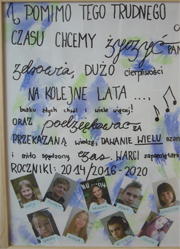 POMIMO TEGO TRUDNEGO
CZASU CHCEMY życzyć
zdrowia DUŻO cierpliwości
NA KOLEJNE LATA ....
ORAZ podziękować za
PRZEKAZANĄ wiedzę, DAWANIE WIELU szans
i miło spędzony czas. WARCI zapamiętania
ROCZNIKI: 2014/2016-2020